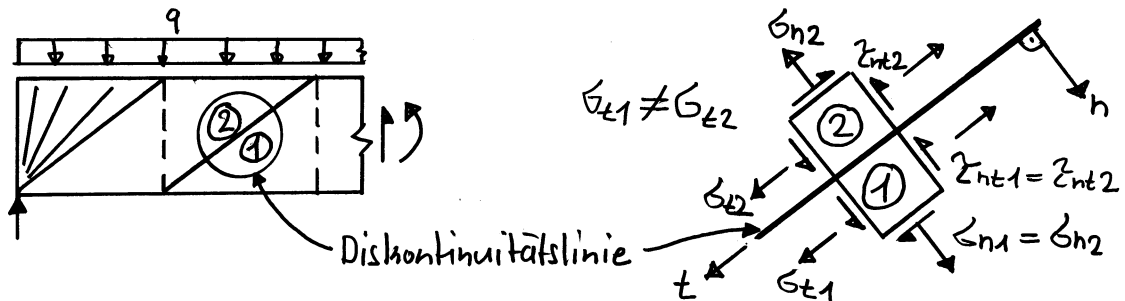 q
② ①
Diskontinuitätslinie
σt1 ≠ σt2
σn2
τnt2
②
①
n
τnt1 = τnt2
σn1 = σn2
σt2
σt1
t